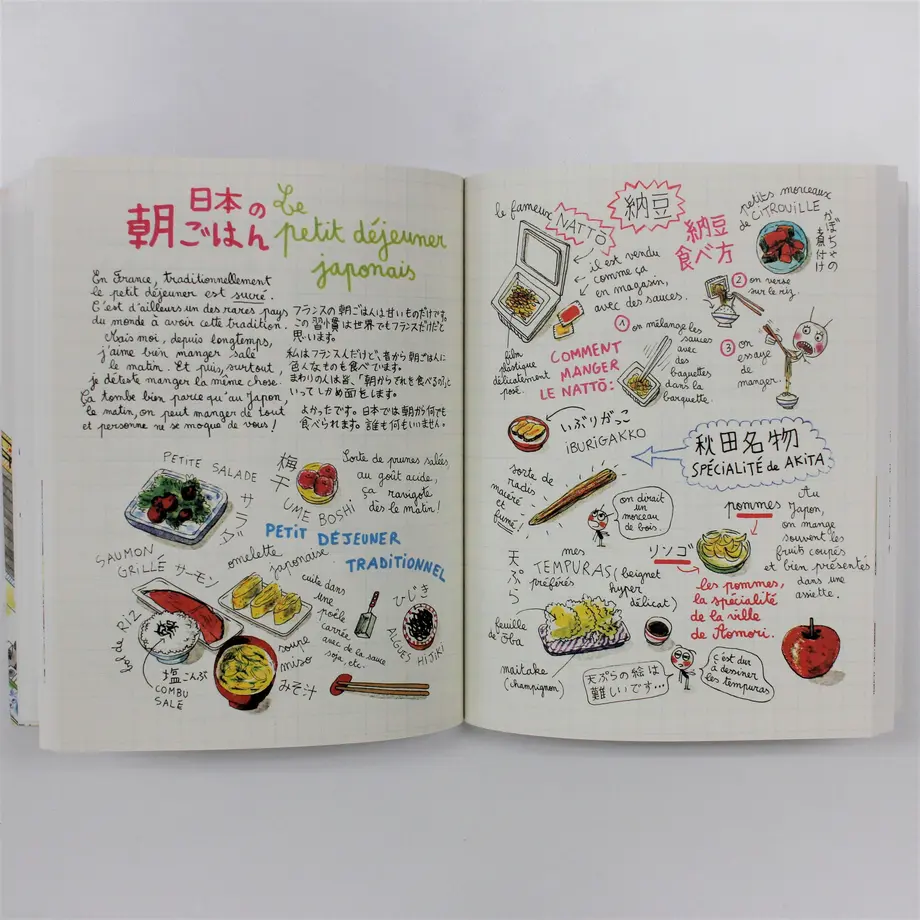 日本の
朝ごはん
Le
petit déjeuner
japonais
En France, traditionnellement
le petit déjeuner est sucré.
C'est d'ailleurs un des rares pays
du monde à avoir cette tradition.
Mais moi, depuis longtemps,
j'aime bien manger salé
le matin. Et puis, surtout,
je déteste manger la même chose.
Ça tombe bien parce qu'au Japon,
le matin, on peut manger de tout
et personne ne se moque de vous!
フランスの朝ごはんは甘いものだけです。
この習慣は世界でもフランスだけだと
思います。
私はフランス人だけど、昔から朝ごはんに
色んなものを食べています。
まわりの人は皆、「朝からそれを食べるの?」と
いってしかめ面をします。
よかったです。日本では朝から何でも
食べられます。誰も何もいいません。
PETITE SALADE
サラダ
梅干
UME BOSHI
Sorte de prunes salées,
au goût acide,
ça ravigote
dès le matin!
PETIT DÉJEUNER
TRADITIONNEL
SAUMON
GRILLÉ
サーモン
omelette
japonaise
cuite dans
une
poêle
carrée
avec de la sauce
soja, etc.
ひじき
ALGUES HIJIKI
bol de RIZ
塩こんぶ
COMBU
SALÉ
soupe
miso
みそ汁
le fameux NATTŌ
納豆
納豆
食べ方
petits morceaux
de CITROUILLE
かぼちゃの
煮付け
il est vendu
comme ça
en magasin,
avec des sauces.
film
plastique
délicatement
posé.
COMMENT
MANGER
LE NATTŌ:
① on mélange les
sauces
avec
des
baguettes
dans la
barquette.
② on verse
sur le riz.
③ on
essaye
de
manger.
いぶりがっこ
IBURIGAKKO
秋田名物
SPÉCIALITÉ de AKITA
sorte de
radis
macéré
et
fumé!
on dirait
un
morceau
de bois.
pommes
リンゴ
Au
Japon,
on mange
souvent les
fruits coupés
et bien présentés
dans une
assiette.
les pommes,
la spécialité
de la ville
de Aomori.
天ぷら
mes
TEMPURAS (beignet
préférés
hyper
délicat)
feuille
de Oba
maitake
(champignon)
天ぷらの絵は
難しいです...
c'est dur
à dessiner
les tempuras